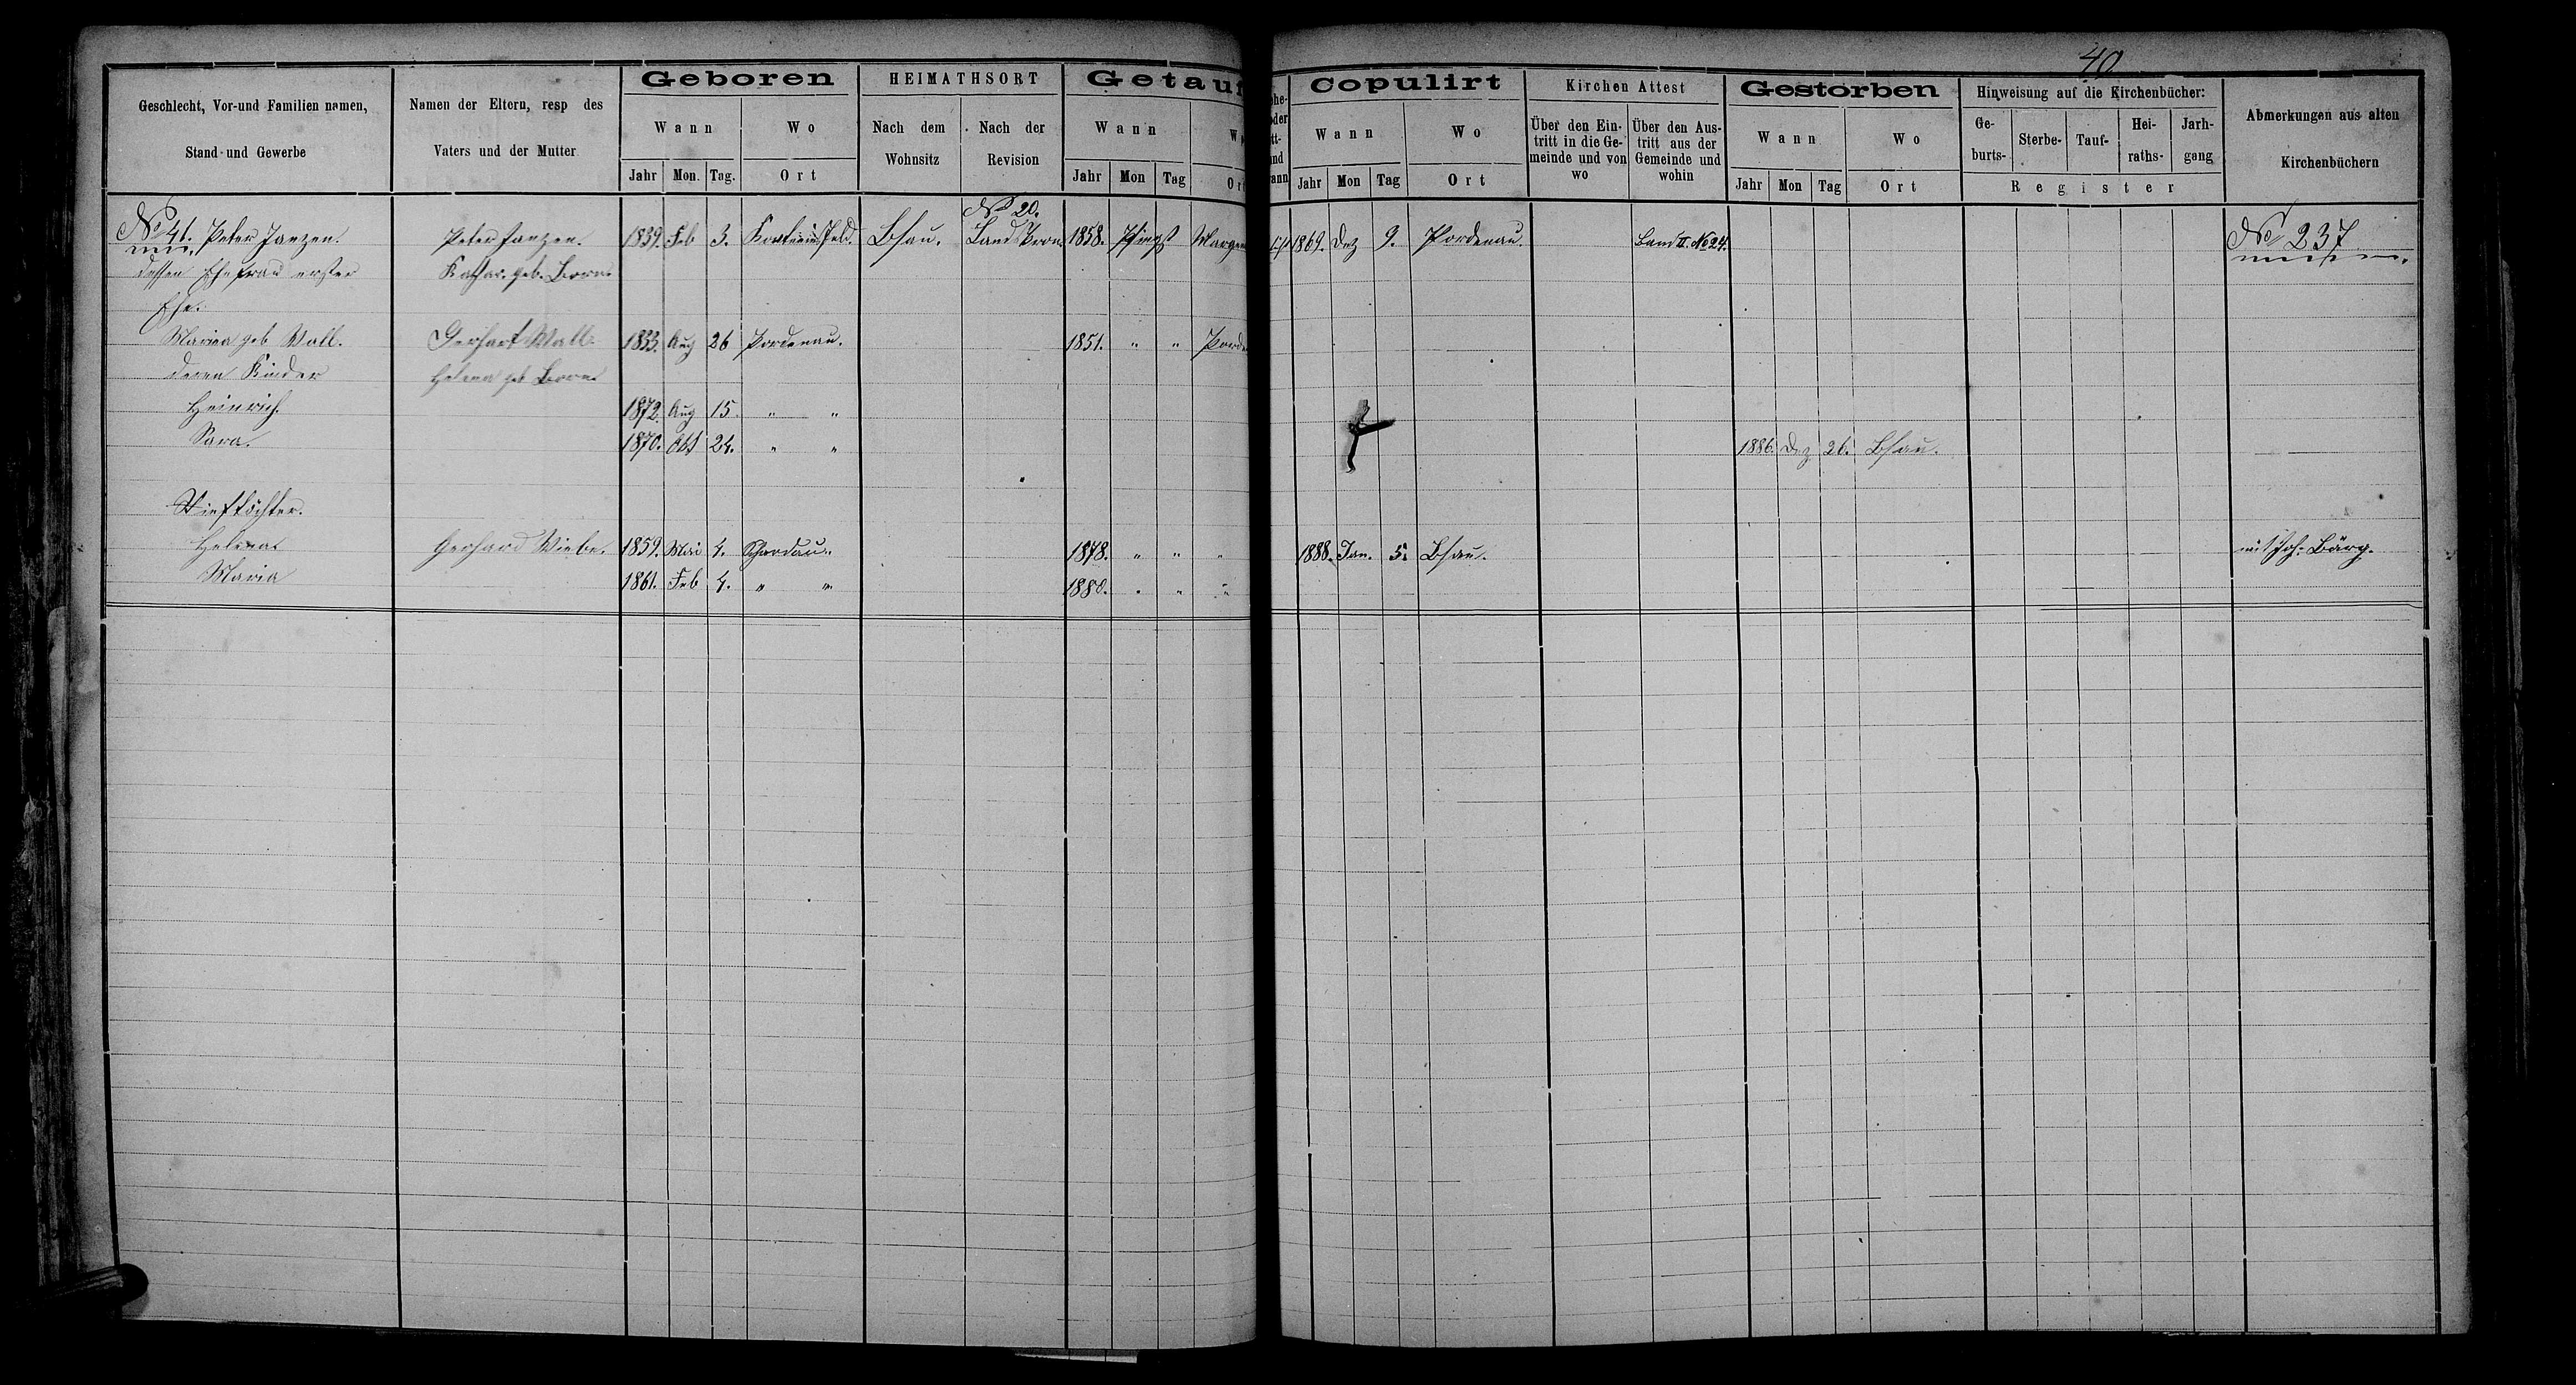 40
Geschlecht, Vor-und Familien namen, Stand und Gewerbe
Namen der Eltern, resp des Vaters und der Mutter
Geboren
Wann
Wo
Jahr Mon. Tag. Ort
HEIMATHSORT
Nach dem Wohnsitz
Nach der Revision
Getauf
Wann
W
Jahr Mon Tag Ort
Copulirt
Wann
Wo
Jahr Mon Tag Ort
Kirchen Attest
Über den Eintritt in die Gemeinde und von wo
Über den Austritt aus der Gemeinde und wohin
Gestorben
Wann
Wo
Jahr Mon Tag Ort
Hinweisung auf die Kirchenbücher:
Geburts- Sterbe- Tauf- Heiraths- Jarhgang
Register
Abmerkungen aus alten Kirchenbüchern
No 20.
No 41. Peter Janzen. Peter Janzen. 1839. Feb 3. Bhau. 1858. Pfingst 1869. Dez 9. Pordenau. Band II. No 24. No 237
dessen Ehefrau erster Kathar. geb. Born.
Ehe:
Maria geb Wall. Gerhart Wall. 1833. Aug 26 Pordenau. 1851. " " Porde
deren Kinder Helena geb Born.
Heinrich. 1872. Aug 15. " "
Sara. 1870. Okt 24. " " 1886. Dez 26. Bhau.
Stieftöchter.
Helena. Gerhard Wiebe. 1859. Mai 4. Schardau. 1878. " " " 1888. Jan. 5. Bhau. mit Joh. Bärg.
Maria 1861. Feb 4. " " 1880. " " "